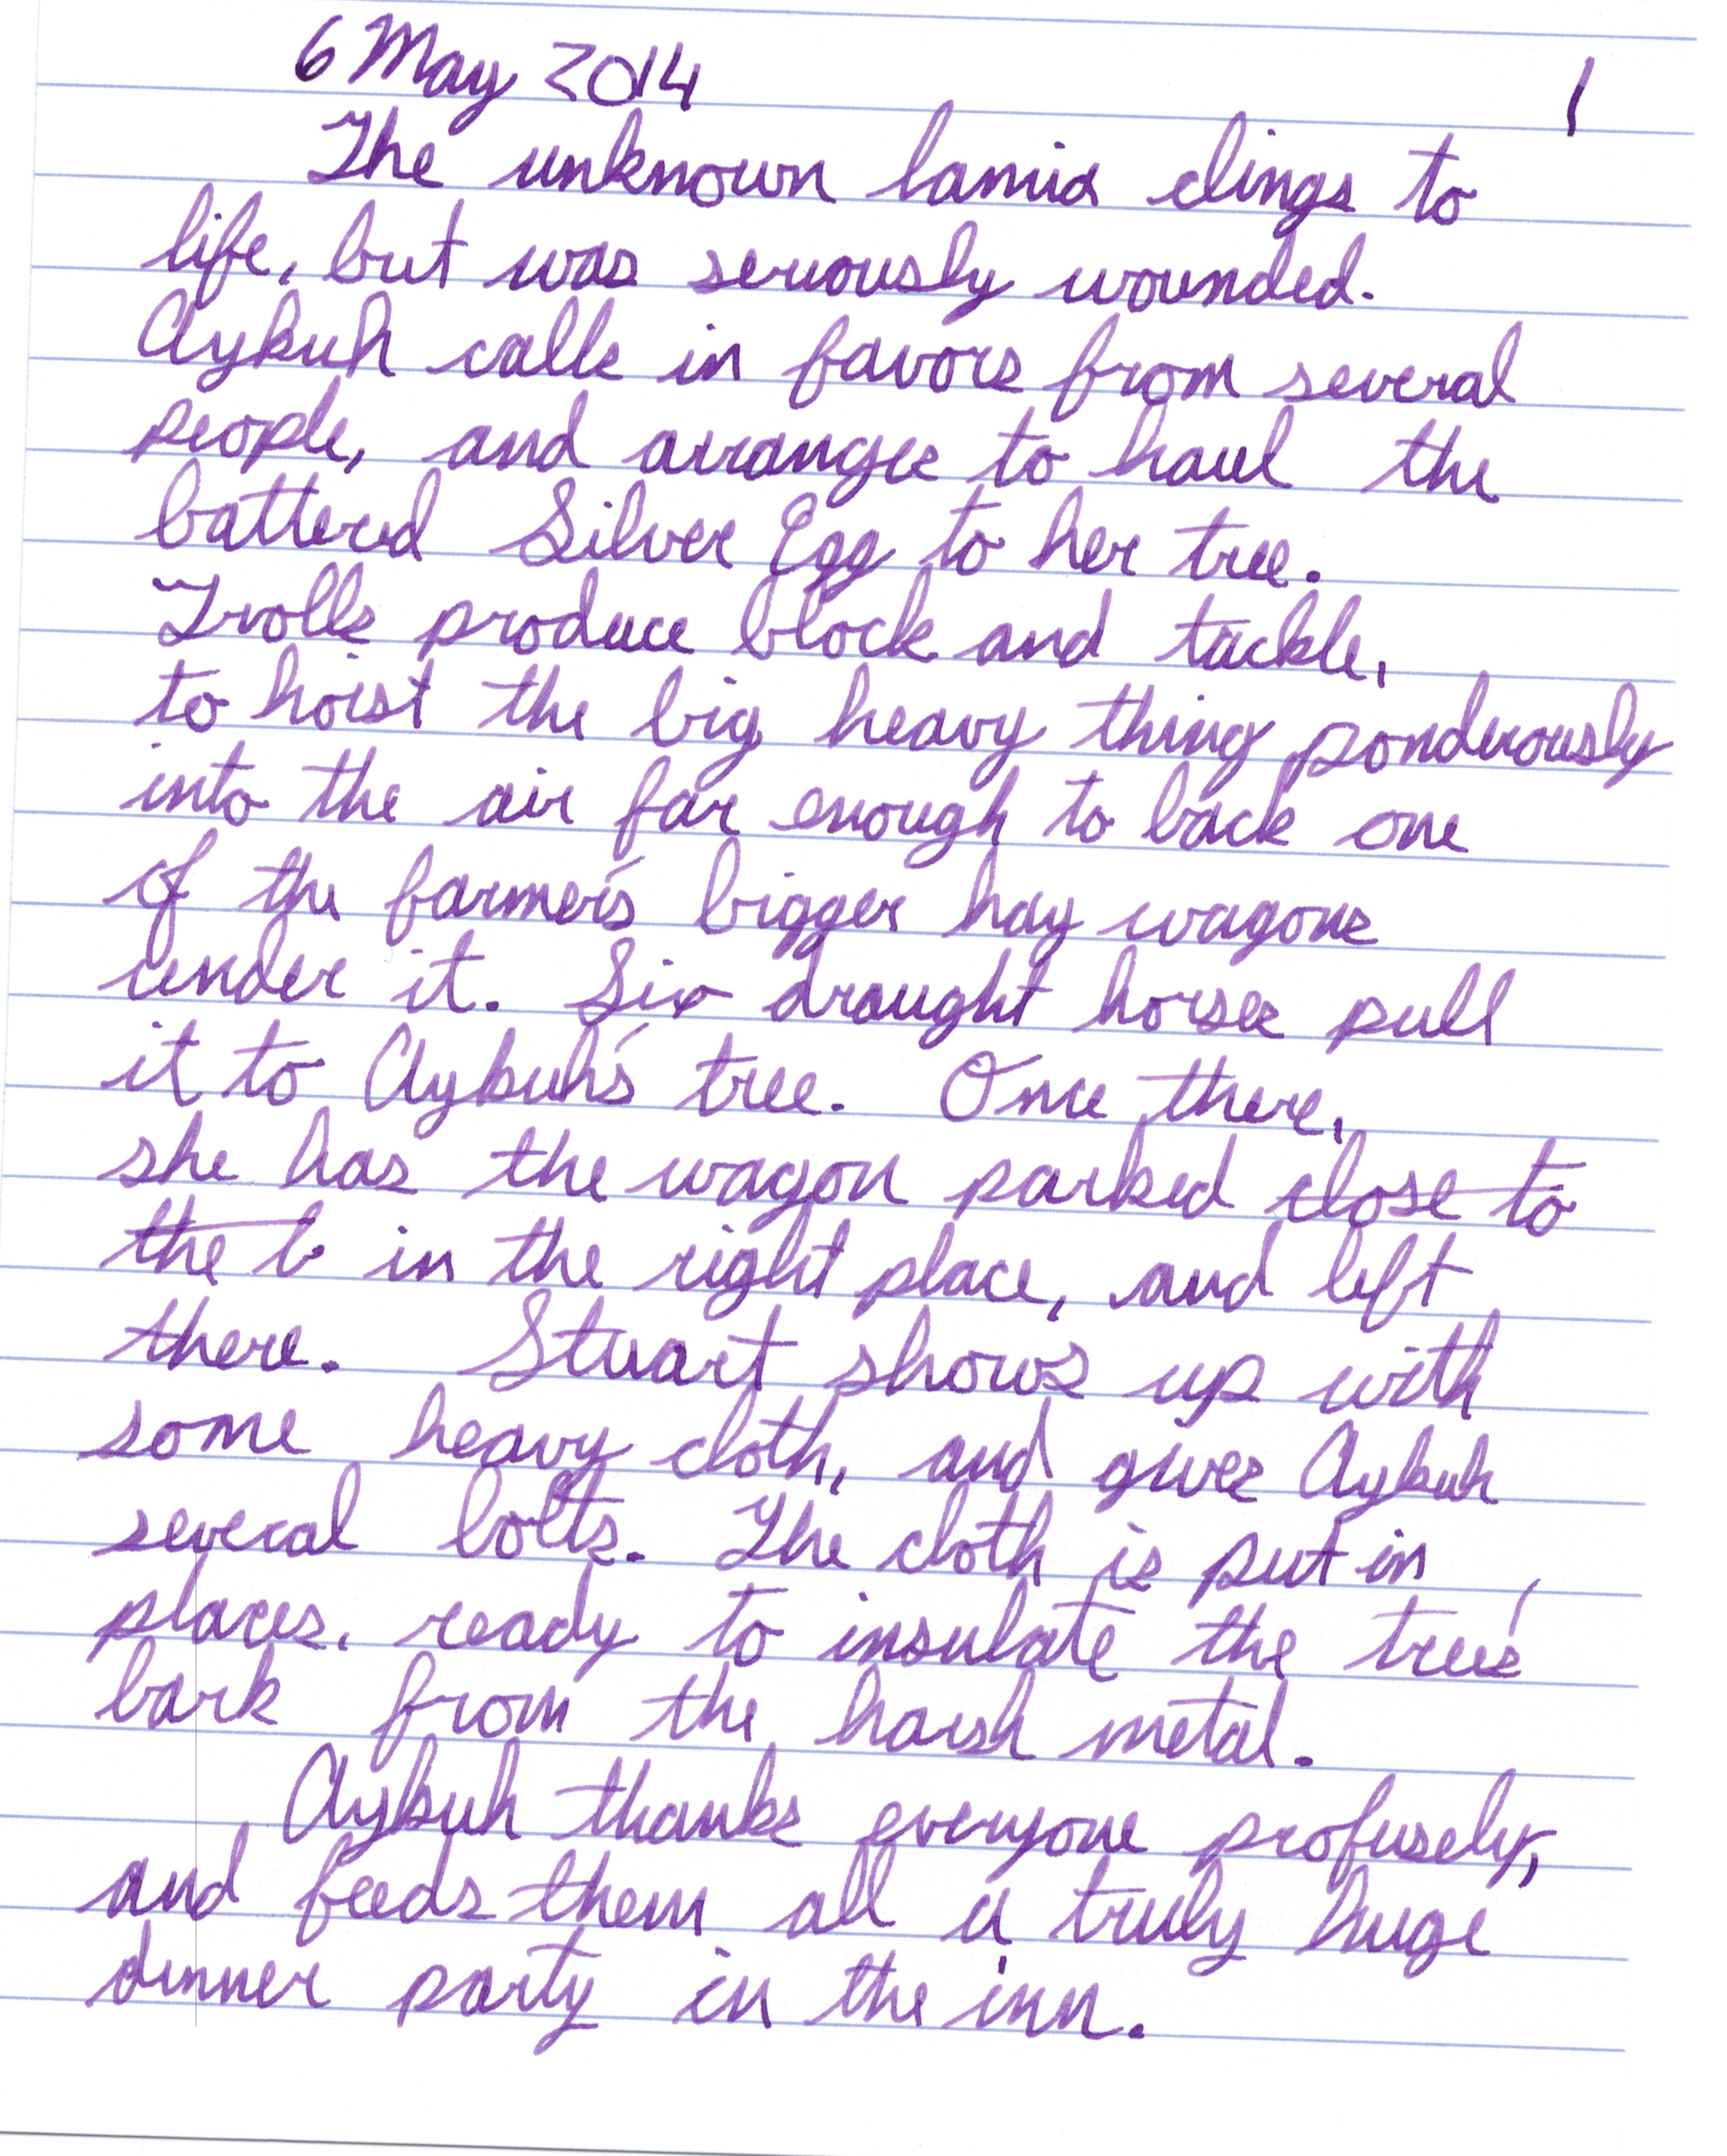 6 May 2014 1
The unknown lamia clings to
life, but was seriously wounded.
Aykuh calls in favors from several
people, and arranges to haul the
battered Silver Egg to her tree.
Trolls produce block and tackle,
to hoist the big heavy thing ponderously
into the air far enough to back one
of the farmer's bigger hay wagons
under it. Six draught horses pull
it to Aykuh's tree. Once there,
she has the wagon parked close to
the b in the right place, and left
there. Stuart shows up with
some heavy cloth, and gives Aykuh
several bolts. The cloth is put in
places, ready to insulate the tree's
bark from the harsh metal.
Aykuh thanks everyone profusely,
and feeds them all a truly huge
dinner party in the inn.